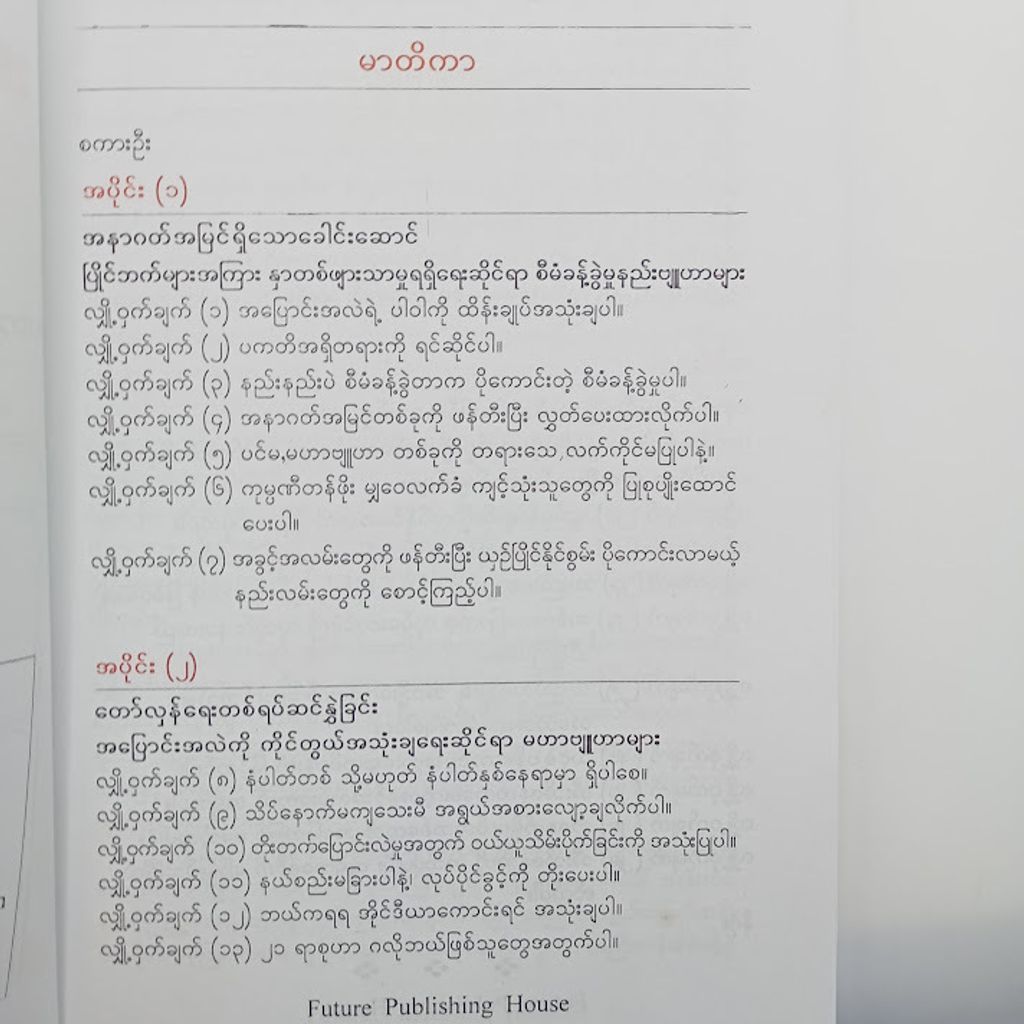 မာတိကာ
စကားဦး
အပိုင်း (၁)
အနာဂတ်အမြင်ရှိသောခေါင်းဆောင်
ပြိုင်ဘက်များအကြား နှာတစ်ဖျားသာမှုရရှိရေးဆိုင်ရာ စီမံခန့်ခွဲမှုနည်းဗျူဟာများ
လျှို့ဝှက်ချက် (၁) အပြောင်းအလဲရဲ့ ပါဝါကို ထိန်းချုပ်အသုံးချပါ။
လျှို့ဝှက်ချက် (၂) ပကတိအရှိတရားကို ရင်ဆိုင်ပါ။
လျှို့ဝှက်ချက် (၃) နည်းနည်းပဲ စီမံခန့်ခွဲတာက ပိုကောင်းတဲ့ စီမံခန့်ခွဲမှုပါ။
လျှို့ဝှက်ချက် (၄) အနာဂတ်အမြင်တစ်ခုကို ဖန်တီးပြီး လွှတ်ပေးထားလိုက်ပါ။
လျှို့ဝှက်ချက် (၅) ပင်မ,မဟာဗျူဟာ တစ်ခုကို တရားသေ,လက်ကိုင်မပြုပါနဲ့။
လျှို့ဝှက်ချက် (၆) ကုမ္ပဏီတန်ဖိုး မျှဝေလက်ခံ ကျင့်သုံးသူတွေကို ပြုစုပျိုးထောင်
ပေးပါ။
လျှို့ဝှက်ချက် (၇) အခွင့်အလမ်းတွေကို ဖန်တီးပြီး ယှဉ်ပြိုင်နိုင်စွမ်း ပိုကောင်းလာမယ့်
နည်းလမ်းတွေကို စောင့်ကြည့်ပါ။
အပိုင်း (၂)
တော်လှန်ရေးတစ်ရပ်ဆင်နွှဲခြင်း
အပြောင်းအလဲကို ကိုင်တွယ်အသုံးချရေးဆိုင်ရာ မဟာဗျူဟာများ
လျှို့ဝှက်ချက် (၈) နံပါတ်တစ် သို့မဟုတ် နံပါတ်နှစ်နေရာမှာ ရှိပါစေ။
လျှို့ဝှက်ချက် (၉) သိပ်နောက်မကျသေးမီ အရွယ်အစားလျော့ချလိုက်ပါ။
လျှို့ဝှက်ချက် (၁၀) တိုးတက်ပြောင်းလဲမှုအတွက် ဝယ်ယူသိမ်းပိုက်ခြင်းကို အသုံးပြုပါ။
လျှို့ဝှက်ချက် (၁၁) နယ်စည်းမခြားပါနဲ့၊ လုပ်ပိုင်ခွင့်ကို တိုးပေးပါ။
လျှို့ဝှက်ချက် (၁၂) ဘယ်ကရရ အိုင်ဒီယာကောင်းရင် အသုံးချပါ။
လျှို့ဝှက်ချက် (၁၃) ၂၁ ရာစုဟာ ဂလိုဘယ်ဖြစ်သူတွေအတွက်ပါ။
Future Publishing House